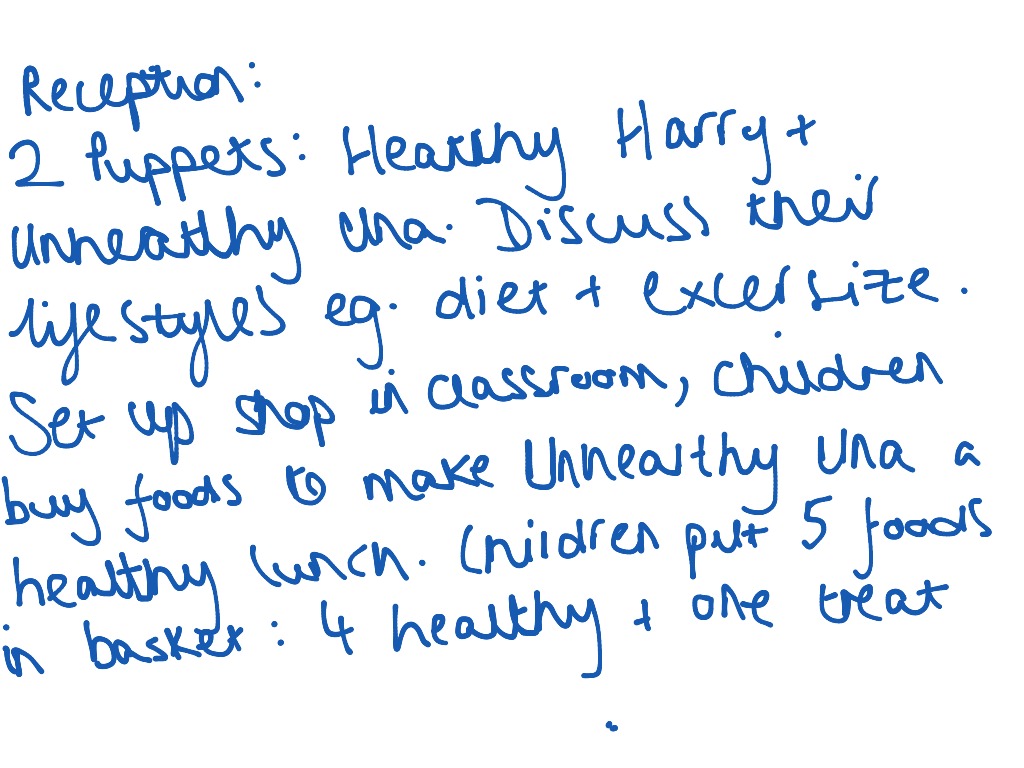 Reception:
2 Puppets: Healthy Harry +
Unhealthy Una. Discuss their
lifestyles eg. diet + excersize.
Set up shop in classroom, children
buy foods to make Unhealthy Una a
healthy lunch. Children put 5 foods
in basket: 4 healthy + one treat
.